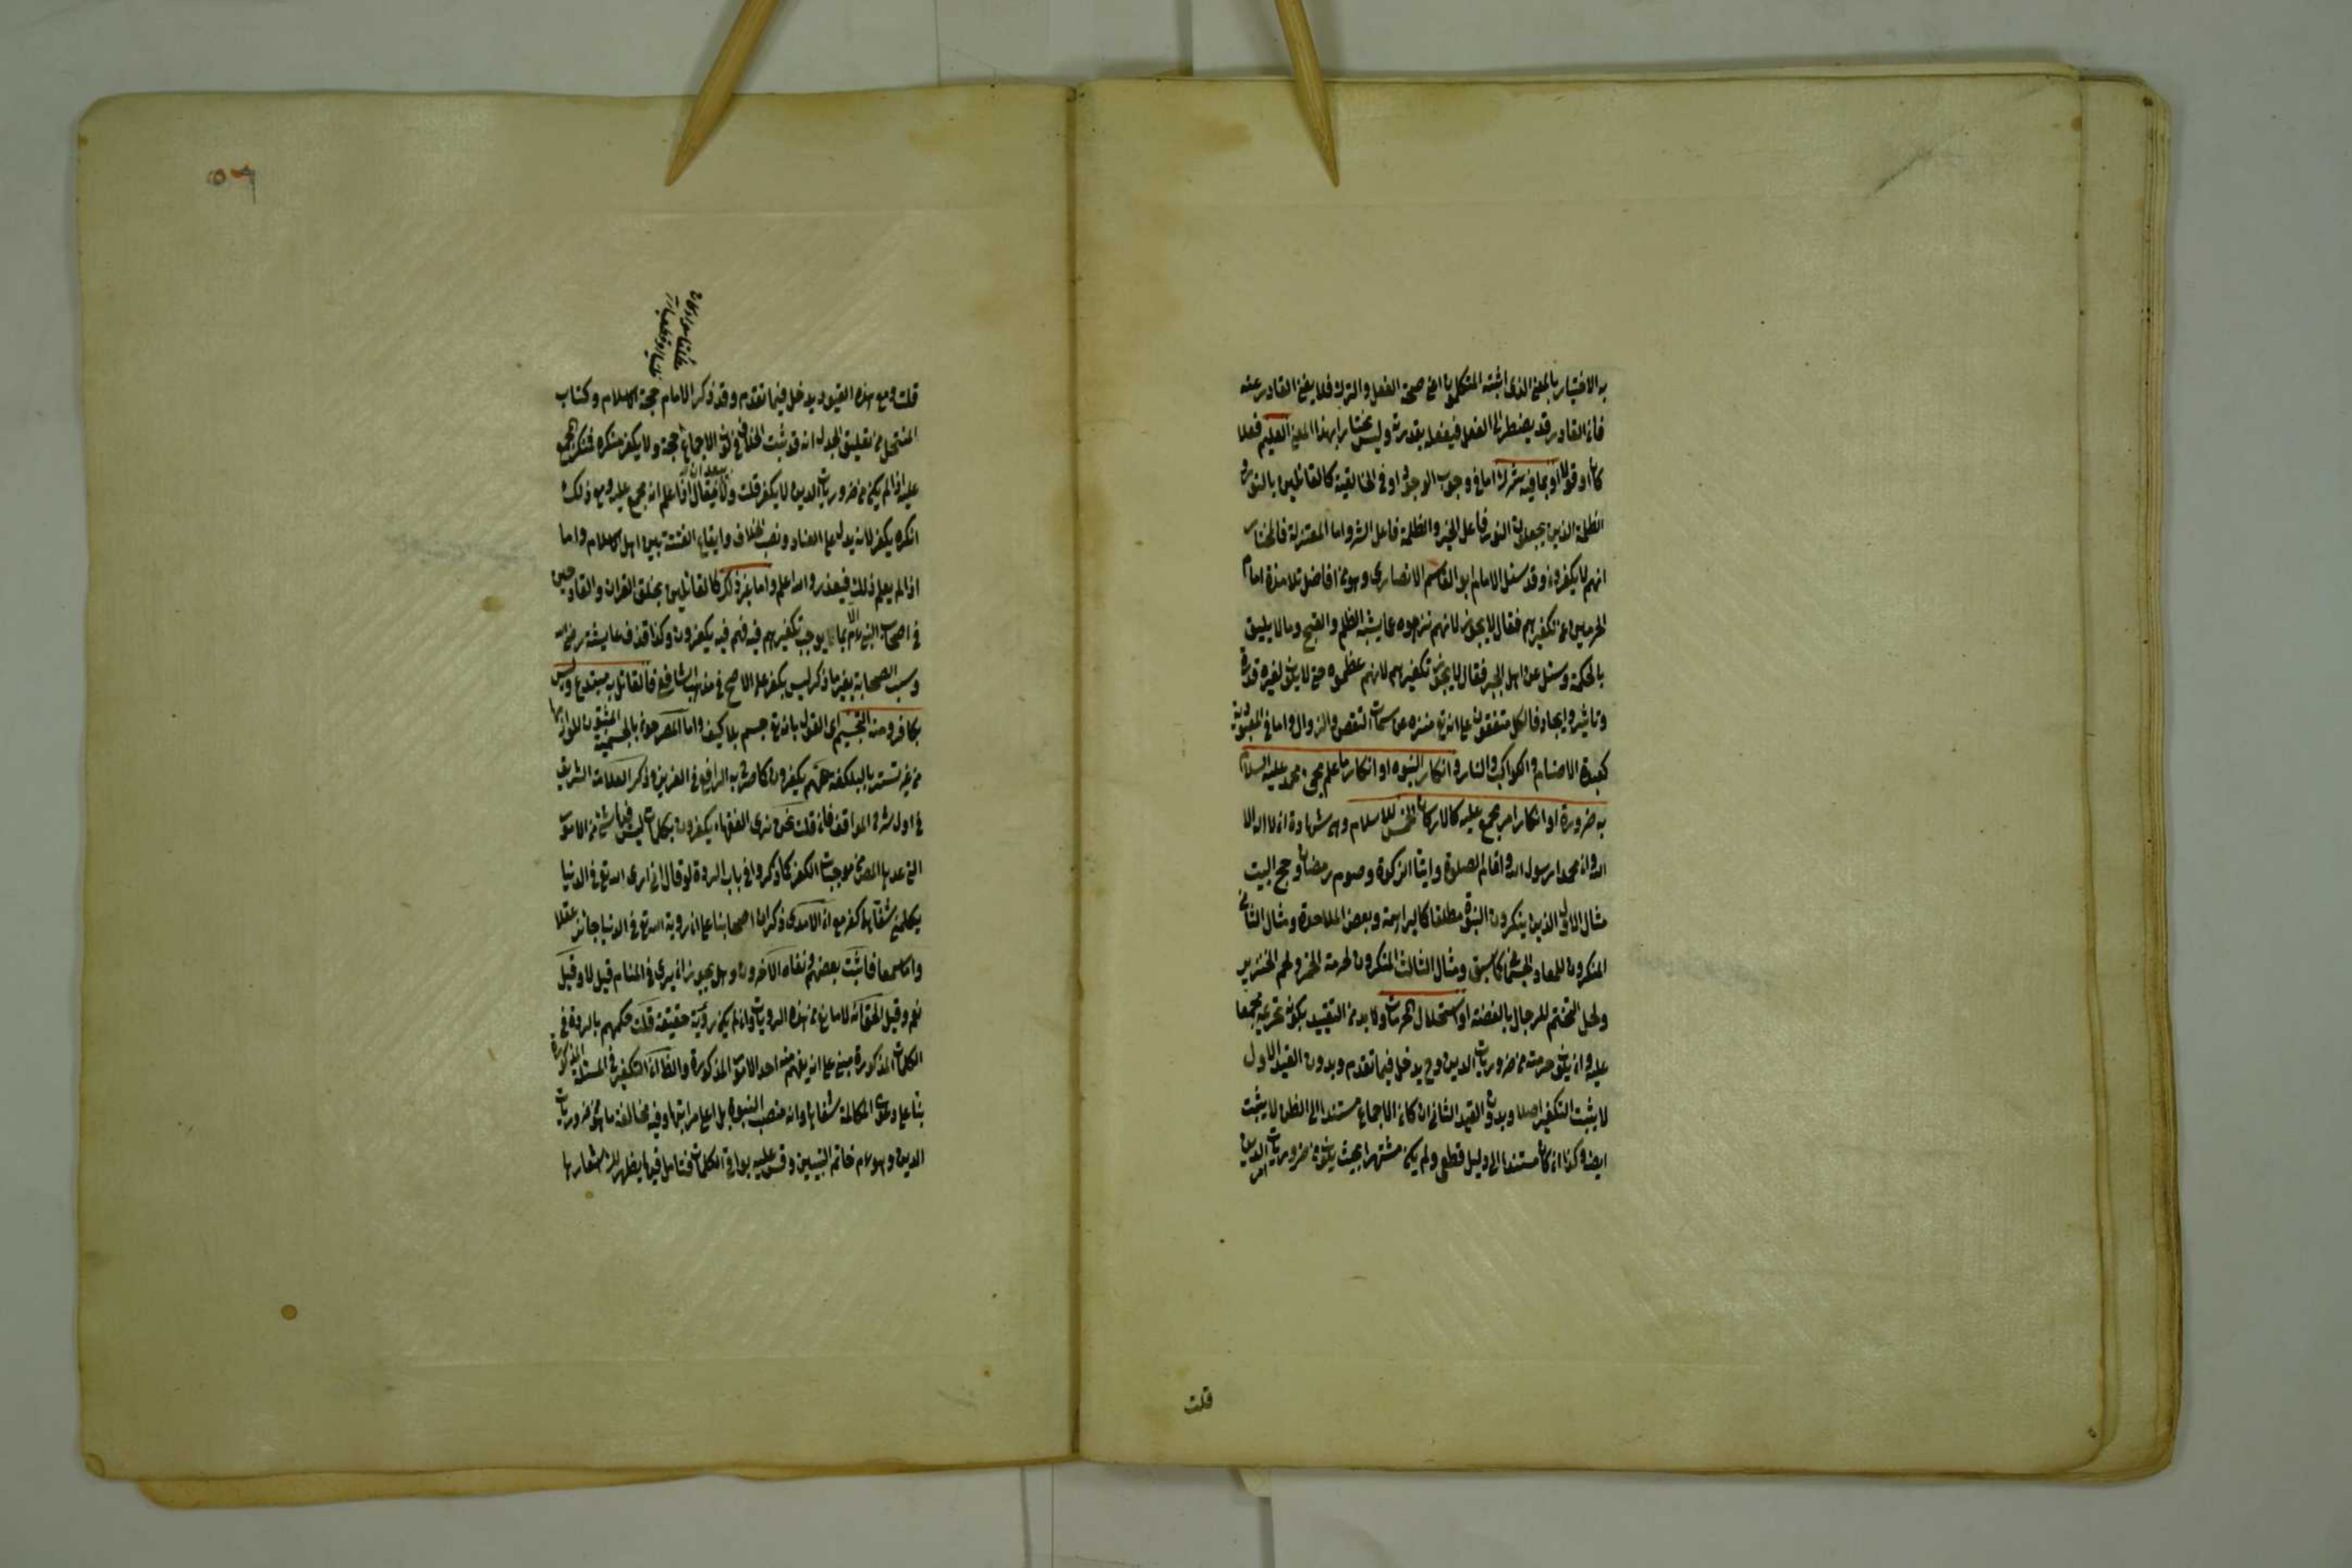 به الاختيار بالمعنى الذى اثبته المتكلمون اعنى صحة الفعل والترك فلا يغنى القادر عنه
فان القادر قد يضطر الى الفعل فيفعله بقدرة وليس مختارا بهذا المعنى العليم فعلا
كان او قولا او بما فيه شرك اما فى وجوب الوجود او فى الخالقية كالقائلين بالنور و
الظلمة الذين يجعلون النور فاعل الخير والظلمة فاعل الشر واما المعتزلة فالمختار
انهم لا يكفرون وقد سئل الامام ابو القاسم الانصارى وهو من افاضل تلامذة امام
الحرمين عن تكفيرهم فقال لا يجوز لانهم نزهوه عما يشبه الظلم والقبح وما لا يليق
بالحكمة وسئل عن اهل الجبر فقال لا يجوز تكفيرهم لانهم عظموه حتى لا يكون لغيره قدرة
وتاثير وايجاد فالكل متفقون على انه تع منزه عن سمات النقص والزوال واما فى المعبودية
كعبدة الاصنام والكواكب والنار وانكار النبوه او انكار ما علم مجئ محمد عليه السلام
به ضرورة او انكار امر مجمع عليه كالاركان الخمس للاسلام وهى شهادة ان لا اله الا
الله وان محمدا رسول الله واقام الصلوة وايتا الزكوة وصوم رمضان وحج البيت
مثال الاول الذين ينكرون النبوة مطلقا كالبراهمة وبعض الملاحدة ومثال الثانى
المنكرون للمعاد الجسمانى كما سبق ومثال الثالث المنكرون لحرمة الخمر ولحم الخنزير
ولحل التختم للرجال بالفضة او استحلال المحرمات ولا بد من التقييد بكون تحريمه مجمعا
عليه وان يكون حرمته من ضروريات الدين وح يدخل فيما تقدم وبدون القيد الاول
لا يثبت التكفير اصلا وبدون القيد الثانى ان كان الاجماع مستندا الى الظن لا يثبت
ايضا وكذا ان كان مستندا الى دليل قطعى ولم يكن مشتهرا بحيث يكون من ضروريات الدين
قلت
قلت ومع هذه القيود يدخل فيما تقدم وقد ذكر الامام حجة الاسلام وكتاب
المنتحل من تعليق الجدل انه قد ثبت الخلاف فى كون الاجماع حجة ولا يكفر منكره فمنكر المجمع
عليه اذا لم يكن من ضروريات الدين لا يكفر قلت ولا يبعد ان يقال اذا علم انه مجمع عليه ومع ذلك
انكره يكفر لانه يدل على العناد ونصب الخلاف وايقاع الفتنة بين اهل الاسلام واما
اذا لم يعلم ذلك فيعذر والله اعلم واما غير ذلك كالقائلين بخلق القران والقادحين
فى اصحاب النبى عم بما لا يوجب تكفيرهم فيه فهم فيه يكفرون وكذا قذف عايشة رضى الله
وسب الصحابة بغير ما ذكر ليس بكفر على الاصح فى مذهب الشافعى فالقائل به مبتدع وليس
بكافر ومنه التجسيم اى القول بانه تع جسم بلا كيف واما المصرحون بالجسمية المثبتون للوازمها
من غير تستر بالبلكفة فهم يكفرون كما صرح به الرافعى فى العزيز وذكر العلامة الشريف
فى اول شرح المواقف فان قلت نحن نرى الفقهاء يكفرون بكلمات ليس فيها شئ من الامور
التى عدها المص من موجبات الكفر كما ذكروا فى باب الردة لو قال انى ارى الله تع فى الدنيا
يكلمنى شفاها كفر مع ان الامدى ذكر ان اصحابنا على ان روية الله تع فى الدنيا جائز عقلا
واما سمعا فاثبت بعضهم ونفاه الاخرون وهل يجوز ان يرى فى المنام قيل لا وقيل
نعم وقيل الحق انه لا مانع من هذه الرويا وان لم يكن رؤية حقيقة قلت حكمهم بالردة فى
الكلمات المذكورة مبنى على انه يفهم منه احد الامور المذكورة والظاهر ان التكفير فى المسئلة المذكورة
بناء على دعوى المكالمة شفاها وانه منصب النبوة بل اعلى مراتبها وفيه مخالفة ما هو من ضروريات
الدين وهو عم خاتم النبيين وقس عليه بواقى الكلمات فتامل فيها يظهر لك اشعارها